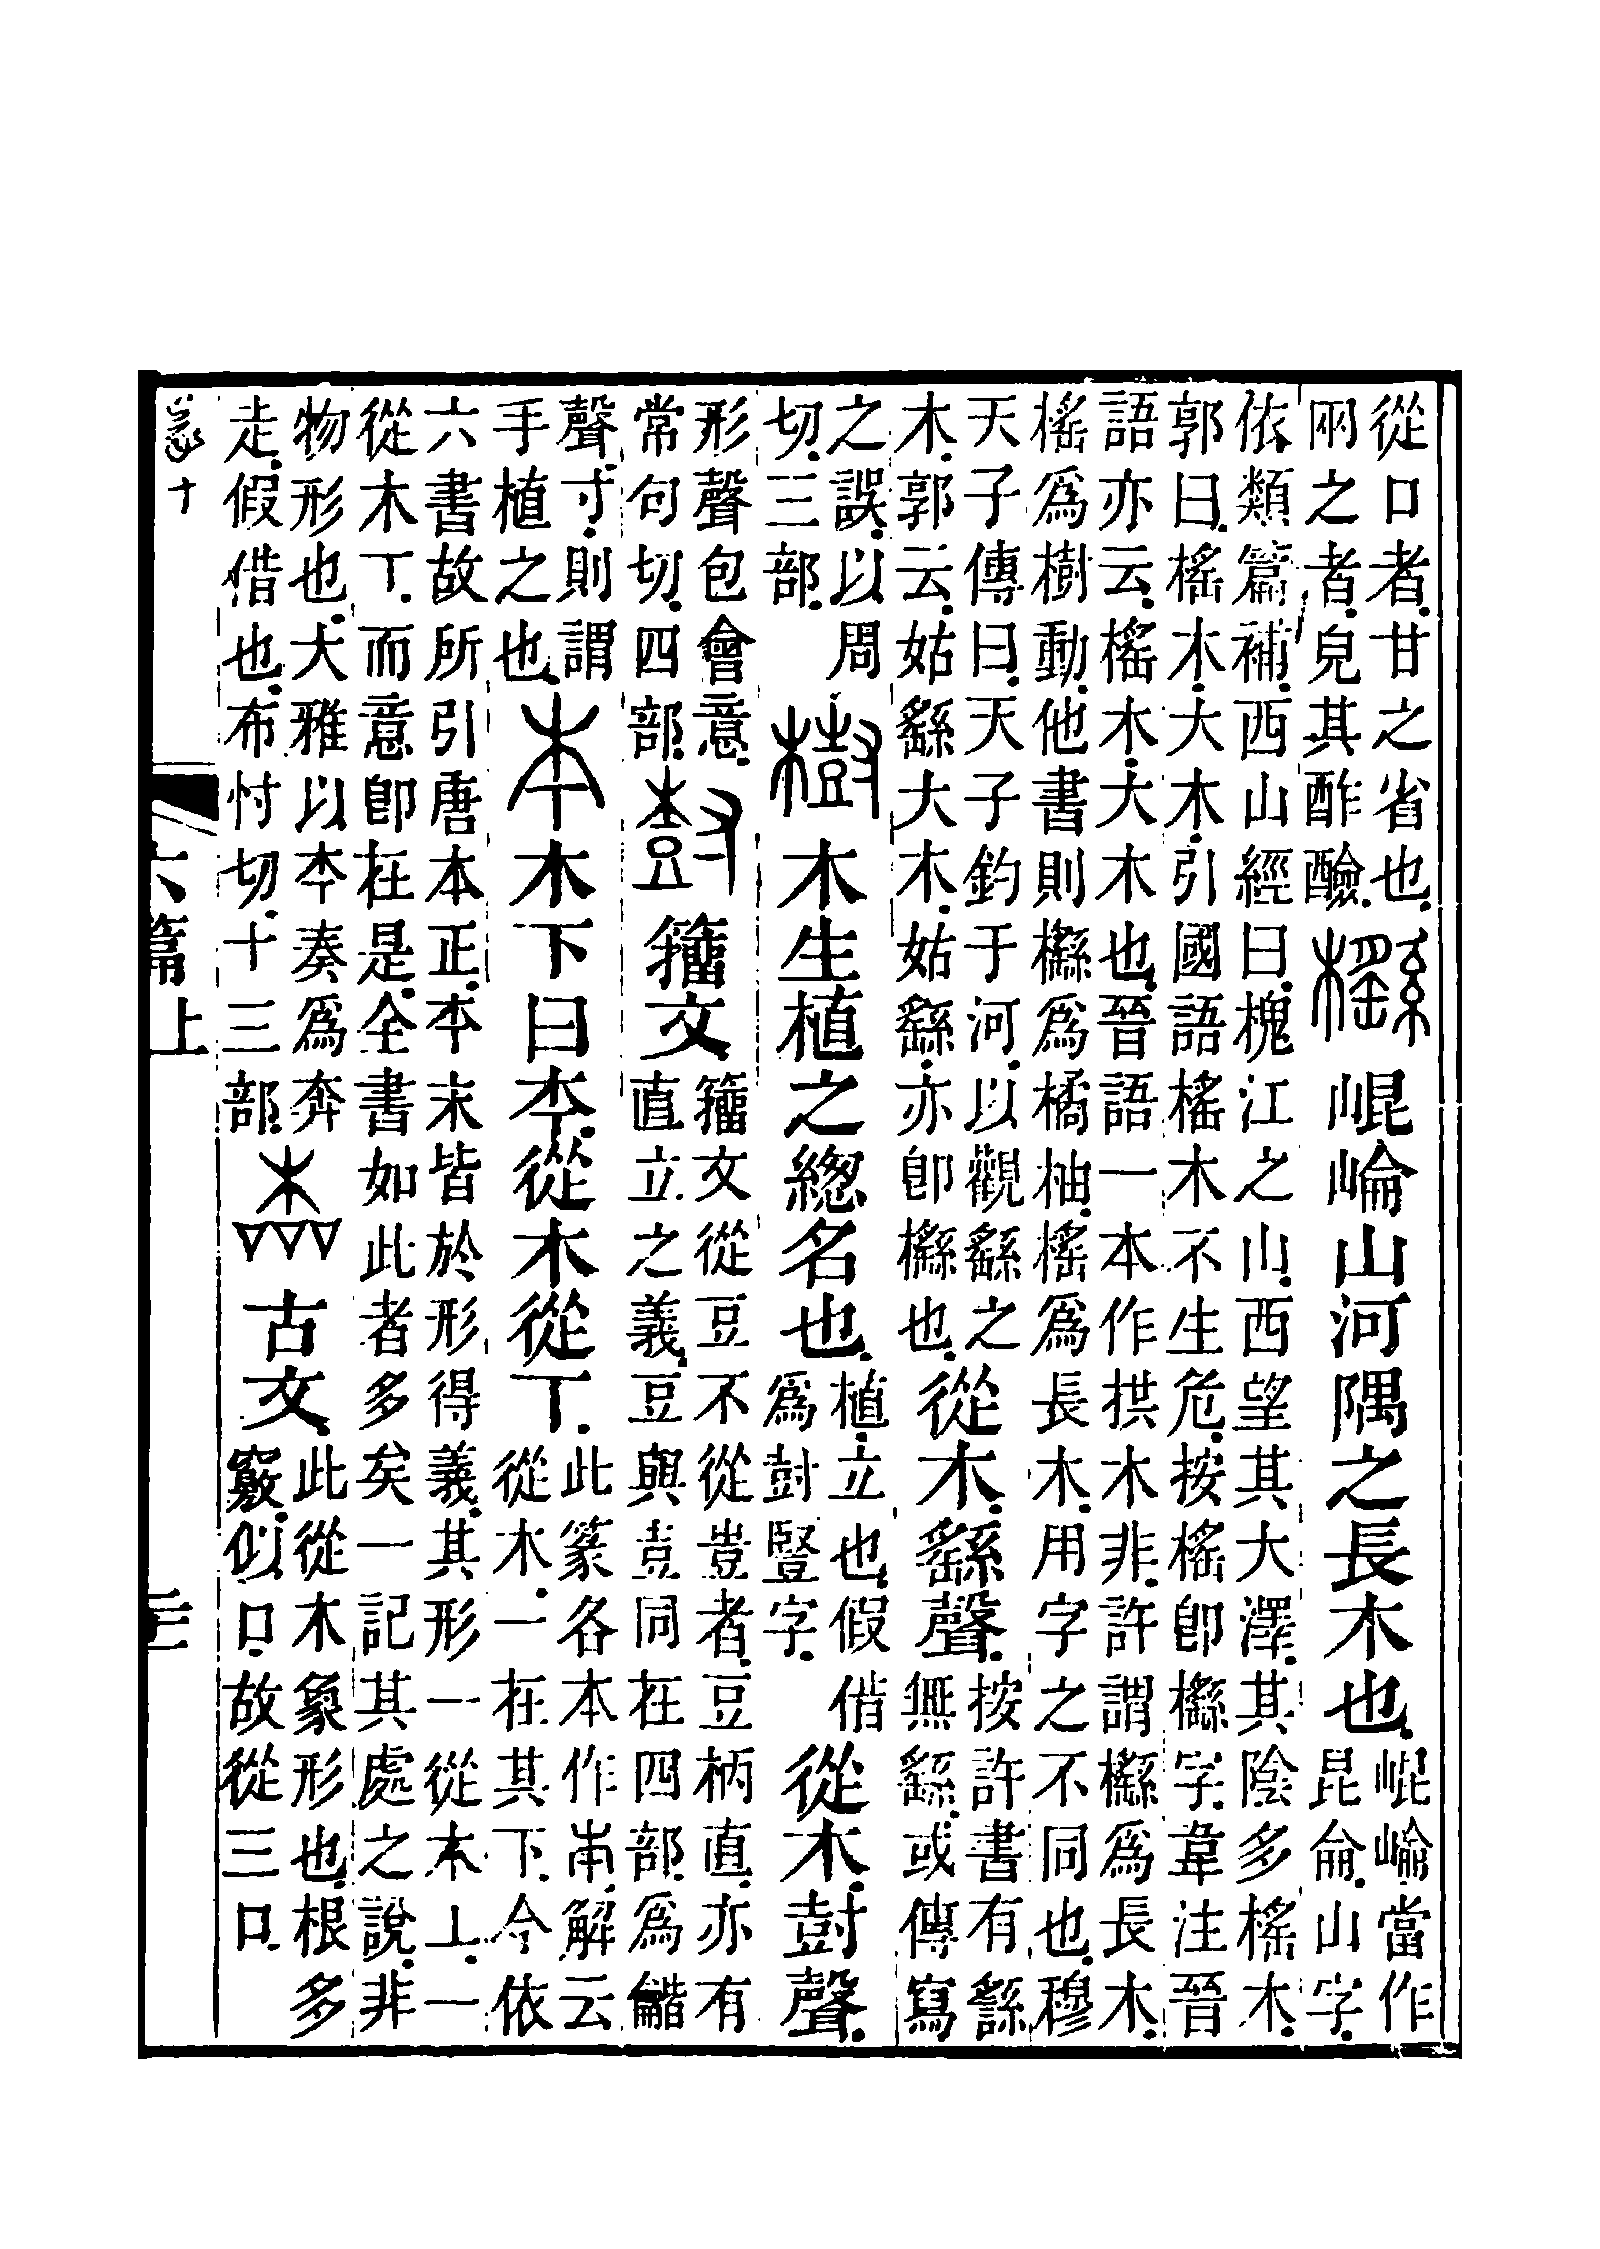 從口者。甘之省也。兩之者。皃其酢醶。櫾崐崘山河隅之長木也。崐崘當作昆侖。山字
依類篇補。西山經曰。槐江之山。西望其大澤。其陰多榣木。郭曰。榣木。大木。引國語榣木不生危。按榣卽櫾字。韋注晉
語亦云。榣木。大木也。晉語一本作拱木非。許謂櫾爲長木。榣爲樹動。他書則櫾爲橘柚。榣爲長木。用字之不同也。穆
天子傳曰。天子釣于河。以觀䌛之木。郭云。姑䌛大木。姑䌛。亦卽櫾也。從木。䌛聲。按許書有䌛無繇。或傳寫
之誤。以周切。三部。樹木生植之總名也。植。立也。假借爲尌豎字。從木。尌聲。
形聲包會意。常句切。四部。籒文籒文從豆不從壴者。豆柄直。亦有直立之義。豆與壴同在四部。爲龤
聲。寸。則謂手植之也。本木下曰本。從木從丅。此篆各本作本。解云從木。一在其下。今依
六書故所引唐本正。本末皆於形得義。其形一從木丄。一從木丅。而意卽在是。全書如此者多矣一記其處之說。非
物形也。大雅以本奏爲奔走。假借也。布忖切。十三部。古文。此從木象形也。根多竅。似口。故從三口。
六篇上